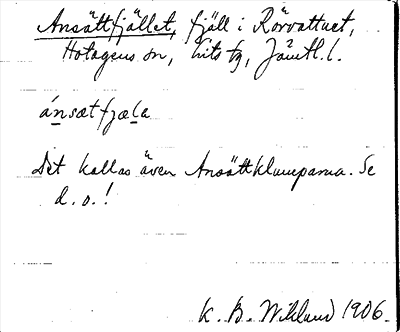 Ansättfjället, fjäll i Rörvattnet,
Hotagens sn, Lits tg, Jämtl. l.
ánsætfjæla
Det kallas även Ansättklumparna. Se
d. o.!
K. B. Wiklund 1906.